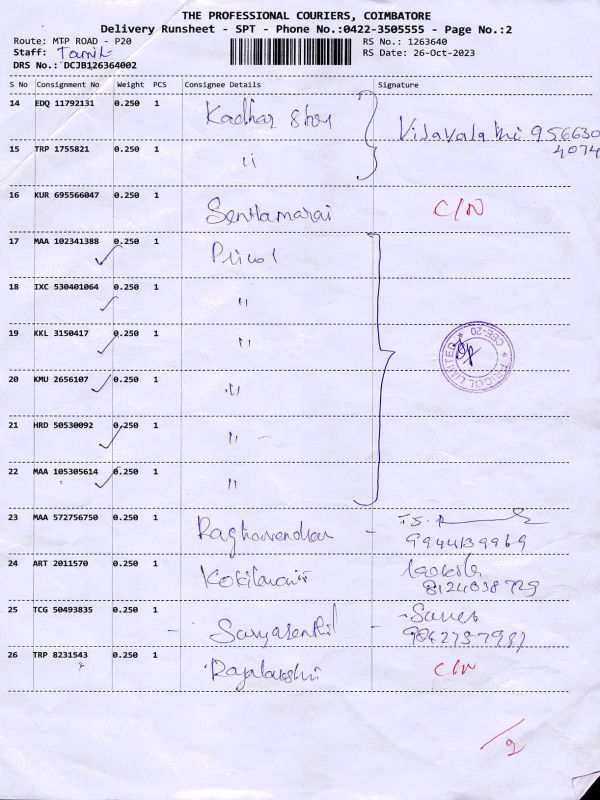 THE PROFESSIONAL COURIERS, COIMBATORE
Delivery Runsheet - SPT - Phone No.:0422-3505555 - Page No.:2
Route: MTP ROAD - P20 RS No.: 1263640
Staff: Tamil RS Date: 26-Oct-2023
DRS No.: DCJB126364002
S No Consignment No Weight PCS Consignee Details Signature
14 EDQ 11792131 0.250 1 Kadhar
15 TRP 1755821 0.250 1 "
956630
4074
16 KUR 695566047 0.250 1 Senthamarai C/N
17 MAA 102341388 0.250 1 Pricol
18 IXC 530401064 0.250 1 "
19 KKL 3150417 0.250 1 "
PRICOL LIMITED * CBE-20 *
20 KMU 2656107 0.250 1 "
21 HRD 50530092 0.250 1 "
22 MAA 105305614 0.250 1 "
23 MAA 572756750 0.250 1 Raghavendran
9944139969
24 ART 2011570 0.250 1
8124038729
25 TCG 50493835 0.250 1 Suryasenthil
26 TRP 8231543 0.250 1 Rajalakshmi C/N
2